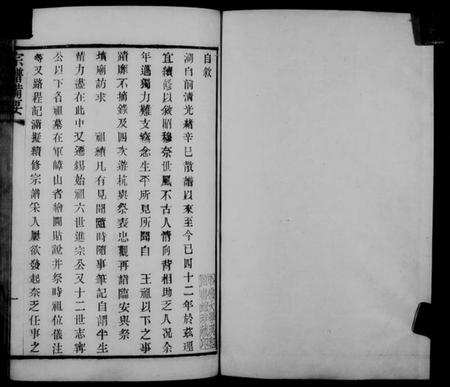 自敘
溯自前清光緒辛巳散譜以來至今已四十二年於茲理
宜續修以敘昭穆奈世風不古人情向背相助乏人況余
年邁獨力難支竊念生平所見所聞自　王祖以下之事
蹟靡不摘錄及四次遊杭與祭表忠觀再謁臨安與祭
墳廟訪求　祖績凡有見聞隨時隨事筆記自謂半生
精力盡在此中又遷錫始祖六世進宗公又十二世志寗
公以下各祖墓在軍嶂山者繪圖貼說并祭時祖位儀注
等又路程記滿擬續修宗譜采入屢欲發起奈乏任事之
宗譜備要
一